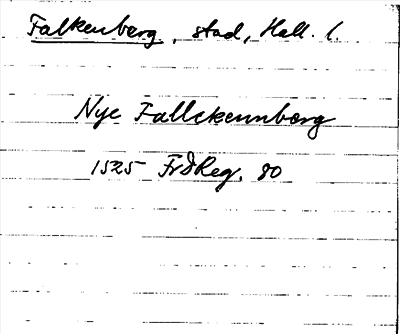 Falkenberg, stad, Hall. l.
Nye Fallckennberg
1525 FrdReg. 80